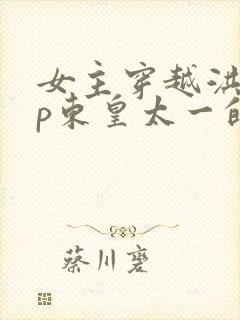 女主穿越洪
p东皇太一的
蔡川鸾